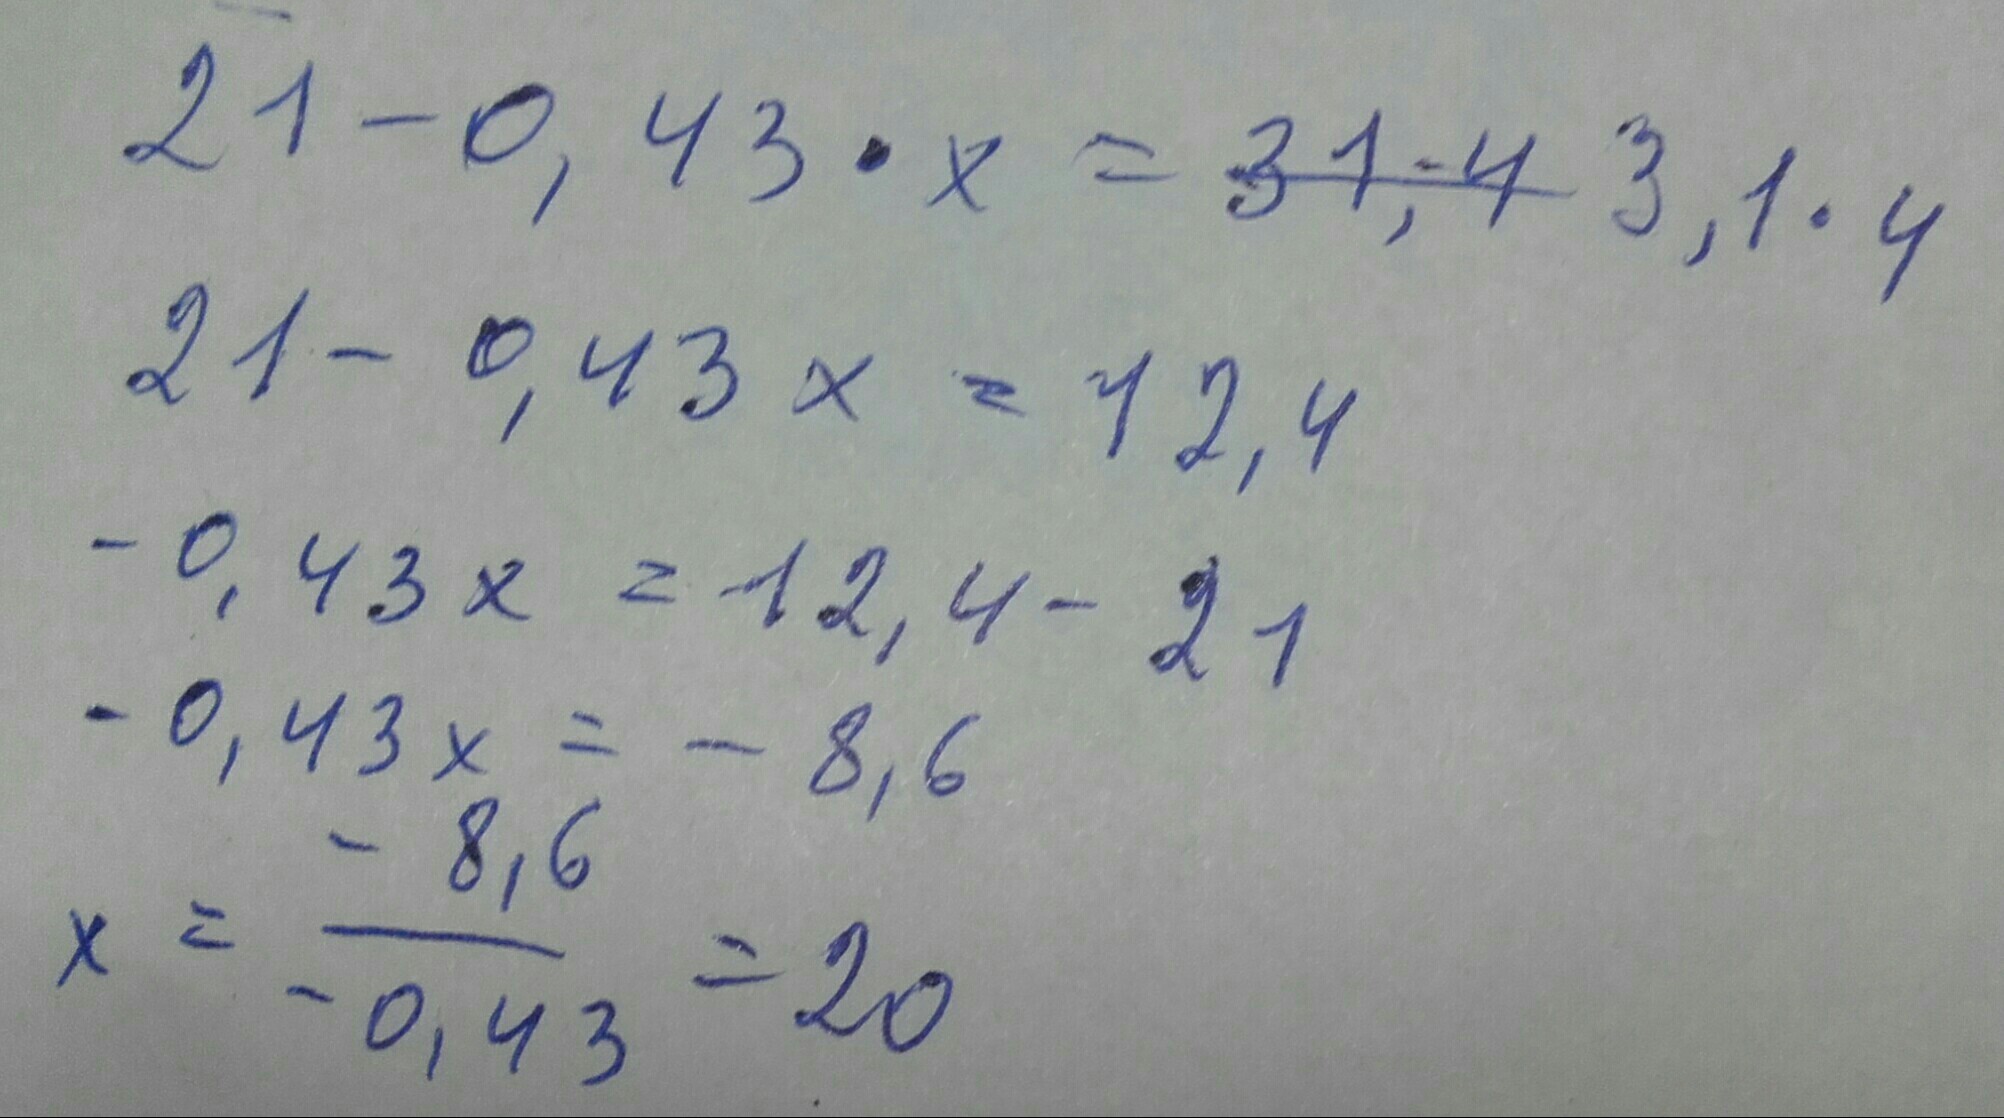 21 - 0,43 · x = 31,4 3,1 · 4
21 - 0,43x = 12,4
- 0,43x = 12,4 - 21
- 0,43x = - 8,6
x = - 8,6 / - 0,43 = 20